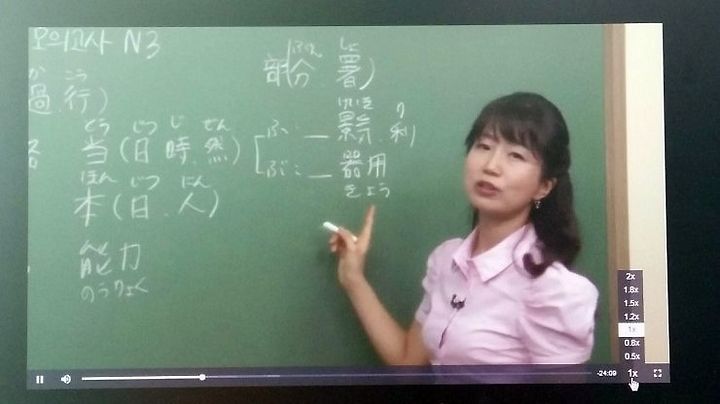 모의고사 N3
か こう
過.行)
とう じつ じ ぜん
当(日.時.然)
ほん じつ にん
本(日.人)
能力
のうりょく
ぶん しょ
部(分 署)
けいき り
ふ 景気.利
ぶ 器用
きよう
2x
1.8x
1.5x
1.2x
1x
0.8x
0.5x
-24:09
1x